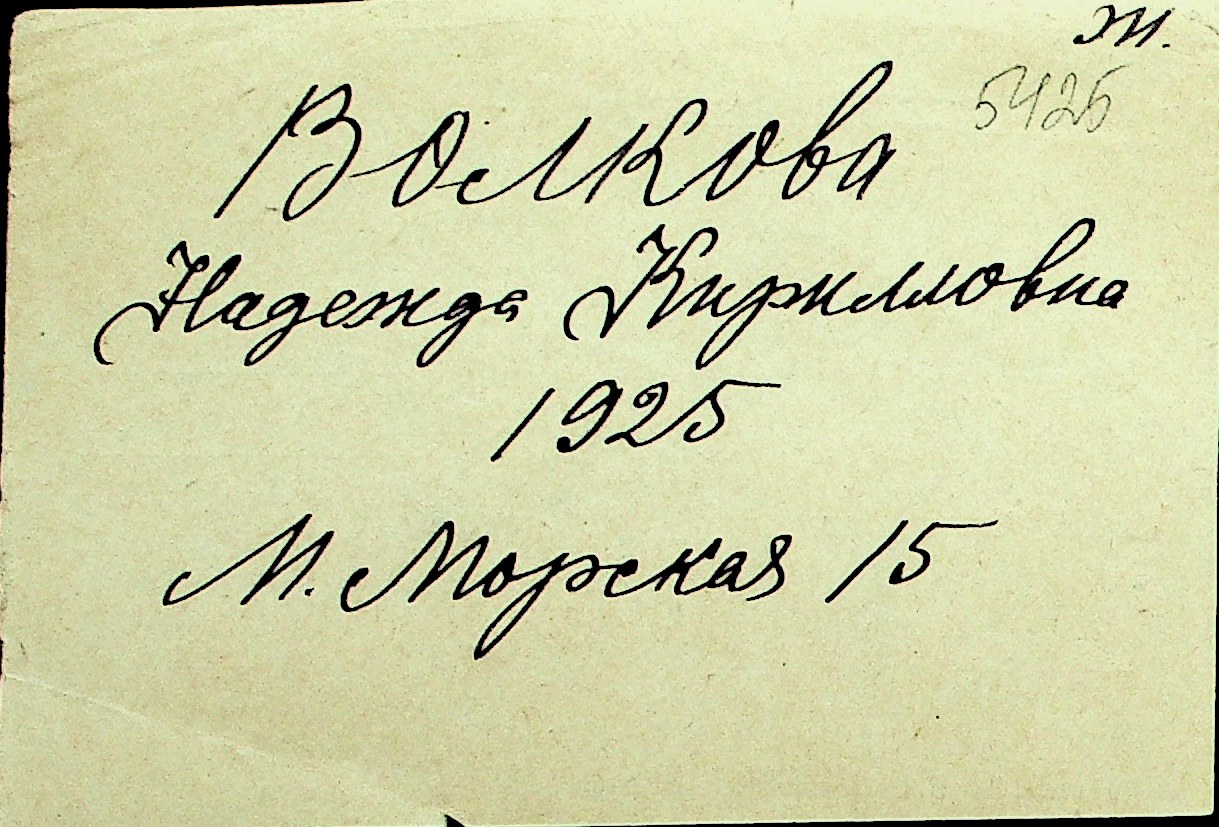 ж.
5425
Волкова
Надежда Кирилловна
1925
М. Морская 15